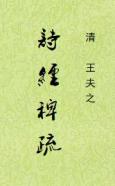 清 王夫之
詩經稗疏